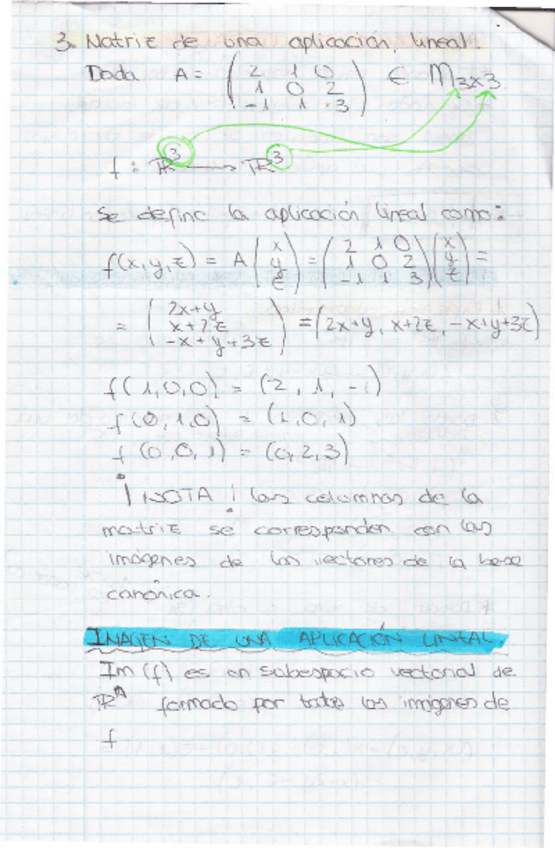 3. Matriz de una aplicación lineal.
Dada A = ( 2 1 0 / 1 0 2 / -1 1 3 ) ∈ M3x3
f : R³ → R³
Se define la aplicación lineal como:
f(x,y,z) = A (x / y / z) = ( 2 1 0 / 1 0 2 / -1 1 3 ) (x / y / z) =
= ( 2x+y / x+2z / -x+y+3z ) = (2x+y, x+2z, -x+y+3z)
f(1,0,0) = (2, 1, -1)
f(0,1,0) = (1,0,1)
f(0,0,1) = (0,2,3)
¡NOTA! las columnas de la
matriz se corresponden con las
imágenes de los vectores de la base
canónica.
IMAGEN DE UNA APLICACIÓN LINEAL
Im(f) es en subespacio vectorial de
Rⁿ formado por todas las imágenes de
f